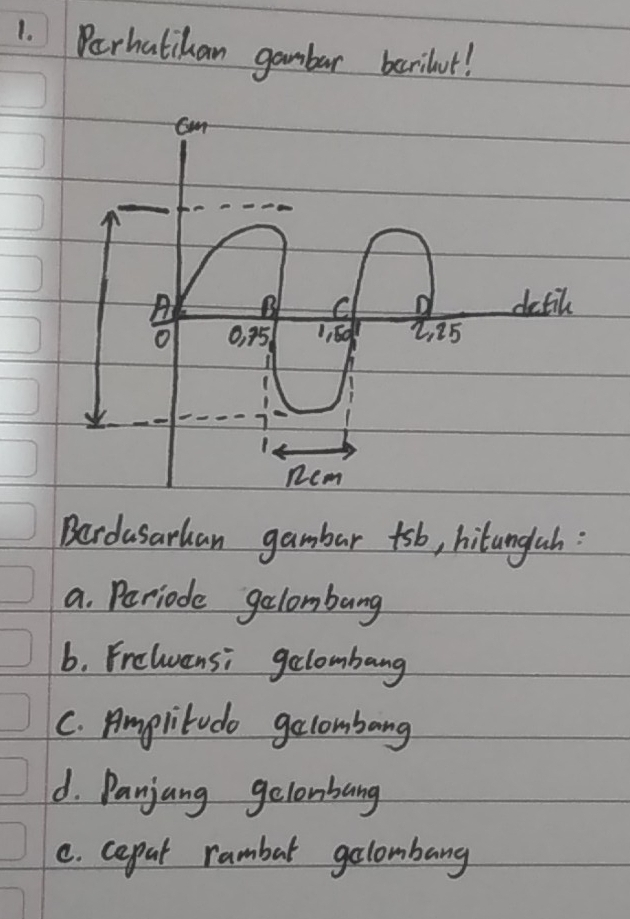 1. Perhatikan gambar berikut!
cm
A B C D detik
0 0,75 1,50 2,25
12 cm
Berdasarkan gambar tsb, hitunglah :
a. Periode gelombang
b. Frekuensi gelombang
C. Amplitudo gelombang
d. Panjang gelombang
e. cepat rambat gelombang